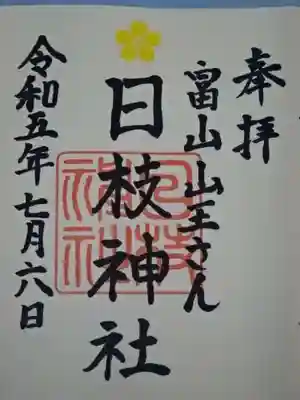 奉拝
富山山王さん
日枝神社
日枝神社
令和五年七月六日